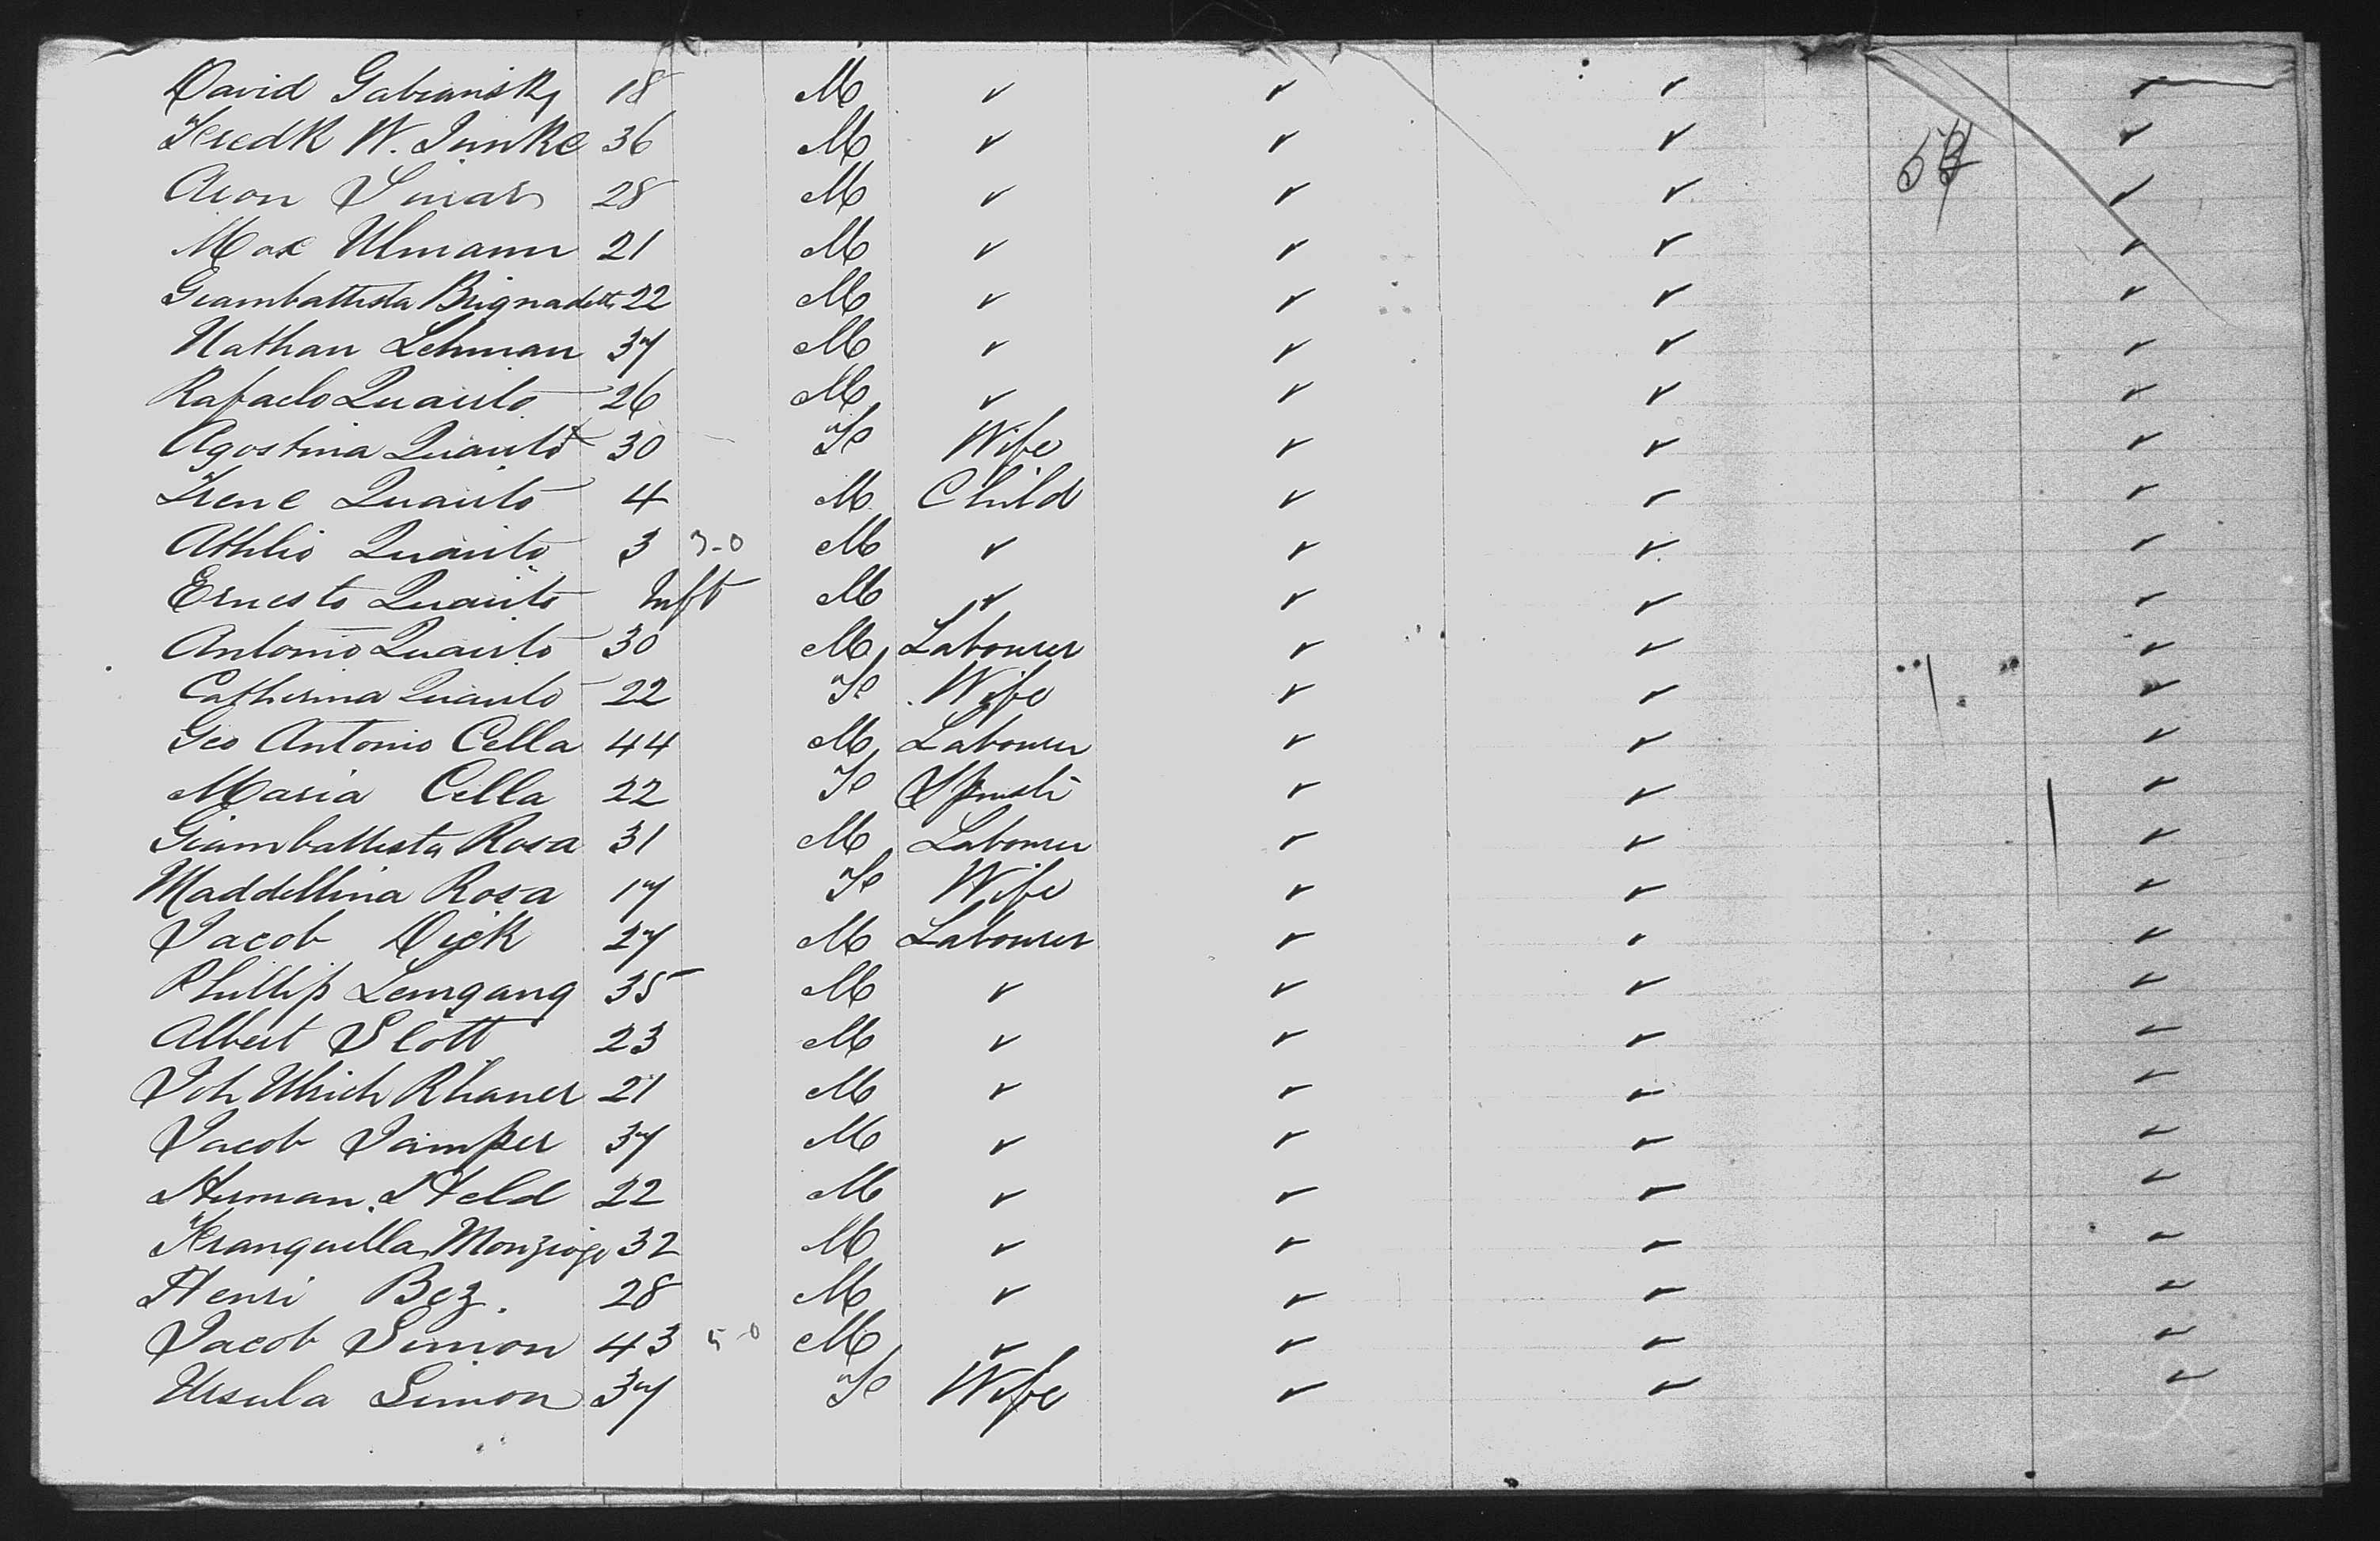 David Gabianisky 18 M ✓ ✓ ✓ ✓
Fredk W. Junke 36 M ✓ ✓ ✓ ✓
Aron 28 M ✓ ✓ ✓ ✓
Max Ulmann 21 M ✓ ✓ ✓ ✓
Giambattista 22 M ✓ ✓ ✓ ✓
Nathan Lehman 37 M ✓ ✓ ✓ ✓
Rafaelo Quaisto 26 M ✓ ✓ ✓ ✓
Agostina Quaisto 30 Fe Wife ✓ ✓ ✓
Irene Quaisto 4 M Child ✓ ✓ ✓
Athlio Quaisto 3 3-0 M ✓ ✓ ✓ ✓
Ernesto Quaisto Inft M ✓ ✓ ✓ ✓
Antonio Quaisto 30 M Labourer ✓ ✓ ✓
Catherina Quaisto 22 Fe Wife ✓ ✓ ✓
Geo Antonio Cella 44 M Labourer ✓ ✓ ✓
Maria Cella 22 Fe Spinstr ✓ ✓ ✓
Giambattista Rosa 31 M Labourer ✓ ✓ ✓
Maddellina Rosa 17 Fe Wife ✓ ✓ ✓
Jacob Dick 27 M Labourer ✓ ✓ ✓
Phillip Lemgang 35 M ✓ ✓ ✓ ✓
Albert Slott 23 M ✓ ✓ ✓ ✓
Joh Ulrich Rhaner 21 M ✓ ✓ ✓ ✓
Jacob Jamper 37 M ✓ ✓ ✓ ✓
Herman Held 22 M ✓ ✓ ✓ ✓
Franquella 32 M ✓ ✓ ✓ ✓
Henri Bez. 28 M ✓ ✓ ✓ ✓
Jacob Simon 43 5-0 M ✓ ✓ ✓ ✓
Ursula Simon 37 Fe Wife ✓ ✓ ✓